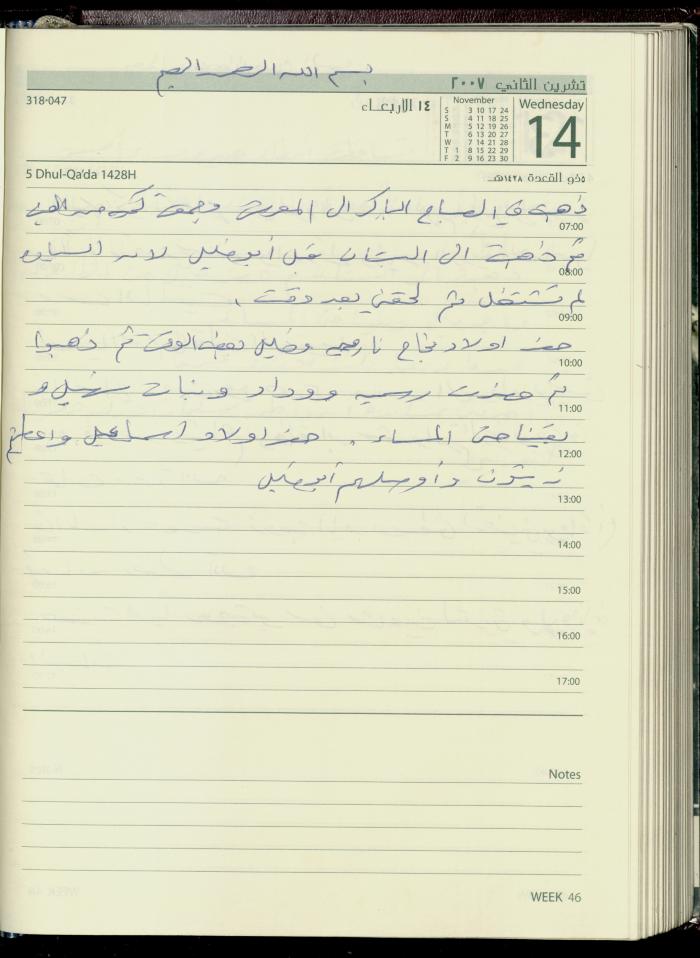 بسم الله الرحمن الرحيم
تشرين الثاني ٢٠٠٧
318-047
١٤ الاربعـاء
November
S 3 10 17 24
S 4 11 18 25
M 5 12 19 26
T 6 13 20 27
W 7 14 21 28
T 1 8 15 22 29
F 2 9 16 23 30
Wednesday
14
5 Dhul-Qa'da 1428H
٥ ذو القعدة ١٤٢٨هـ
ذهبت في الصباح الباكر الى وجمعت
07:00
ثم ذهبت الى البستان قبل أبو خليل لانه السيارة
08:00
لم تشتغل ثم لحقني بعد وقت .
09:00
حضر اولاد نجاح وخليل بعض الوقت ثم ذهبوا
10:00
ثم حضرت رسميه ووداد وبنات سهيل و
11:00
بقينا حتى المساء . حضر اولاد اسماعيل واعطيتهم
12:00
زيتون وأوصلهم أبو خليل
13:00
14:00
15:00
16:00
17:00
Notes
WEEK 46